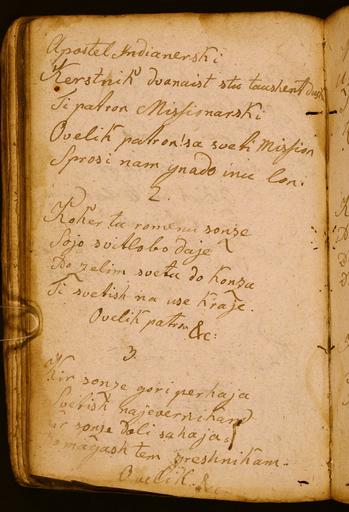 Apostel Indianerski
Kerstnik dvanaist stu taushent dush
Ti patron Missionarski
O velik patron sa sveti Mission
Sprosi nam gnado inu lon.
2.
Koker ta romenu sonze
Sojo svitlobo daje
Po zelim svetu do konza
Ti svetish na use kraje.
O velik patron &c:
3.
Kir sonze gori perhaja
Svetish najevernikam
Kir sonze doli sahaja
Pomagash tem greshnikam.
O velik. &c.